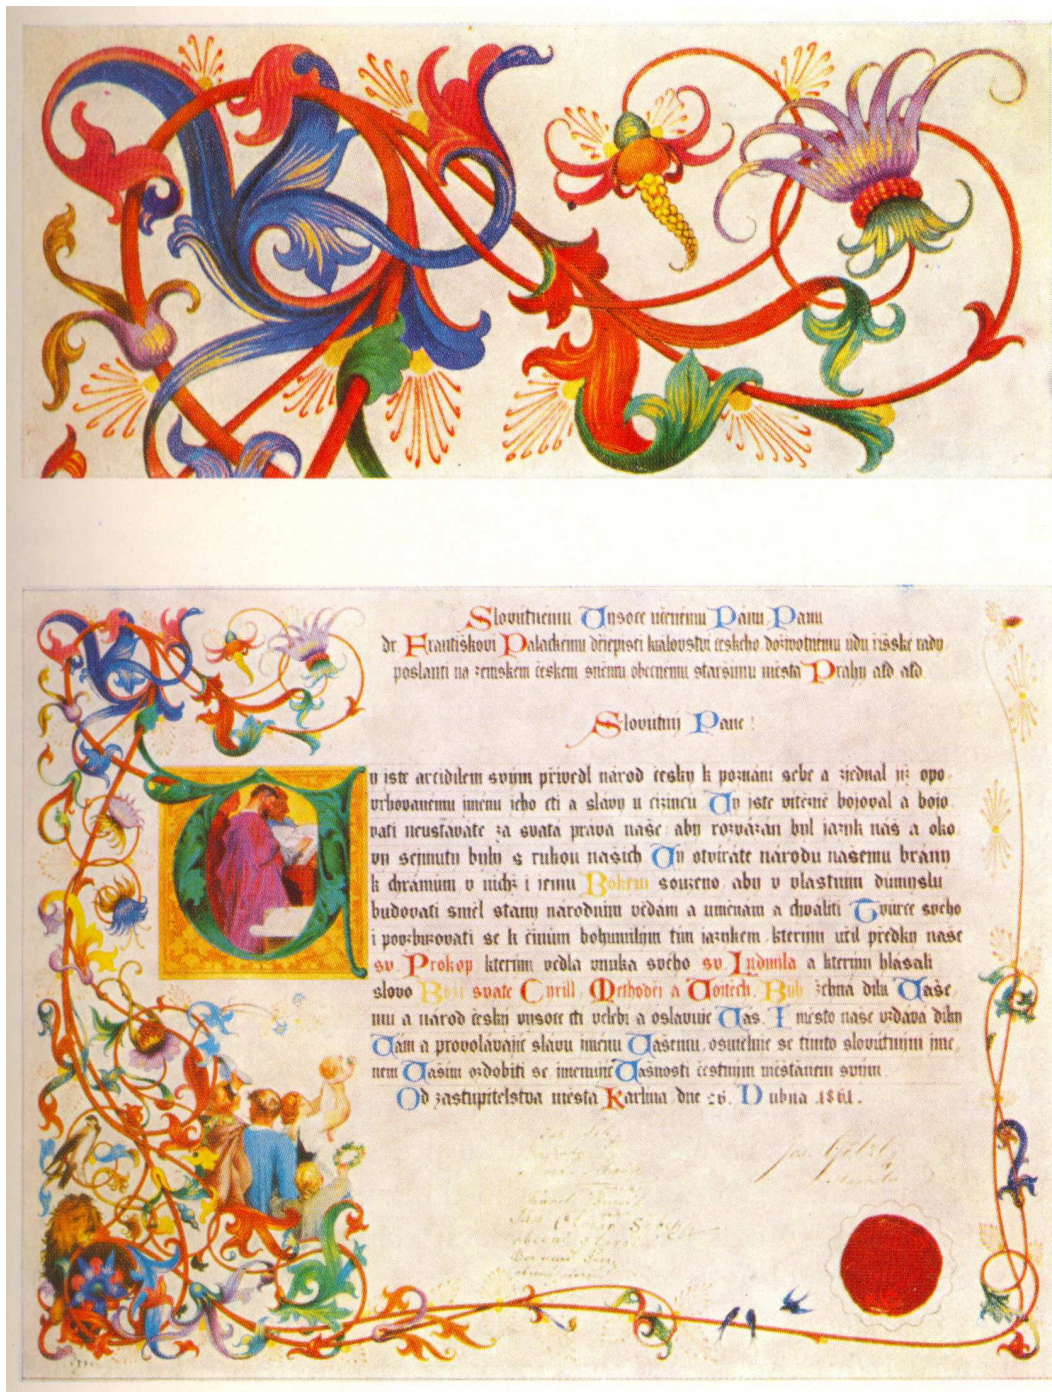 Slovutnému Vysoce učenému Pánu Panu
dr Františkovi Palackému dějepisci království českého doživotnému údu říšské rady
poslanci na zemském českém sněmu obecnému staršímu města Prahy atd atd.
Slovutný Pane!
Vy jste arcidílem svým přivedl národ český k poznání sebe a zjednal již opo-
vrhovanému jménu jeho cti a slávy u cizincu Vy jste vítězně bojoval a bojo-
vati neustáváte za svatá práva naše aby rozvázán byl jazyk náš a oko-
vy sejmuty byly s rukou našich Vy otvíráte národu našemu brány
k chrámum v nichž i jemu Bohem souzeno aby v vlastním dumyslu
budovati směl stany národním vědám a uměnám a chváliti Tvurce svého
i povzbuzovati se k činum bohumilým tím jazykem, kterým učil předky naše
sv. Prokop kterým vedla vnuka svého sv. Ludmila a kterým hlásali
slovo Boží svaté Cyrill, Methoděj a Vojtěch. Buh žehná dílu Vaše-
mu a národ český vysoce ctí velebí a oslavuje Vás. I město naše vzdává díky
Vám a provolávajíc slávu jménu Vašemu, osměluje se tímto slovutným jmé-
nem Vaším ozdobiti se jmenujíc Vašnosti čestným měštanem svým.
Od zastupitelstva města Karlína dne 26. Dubna 1861.